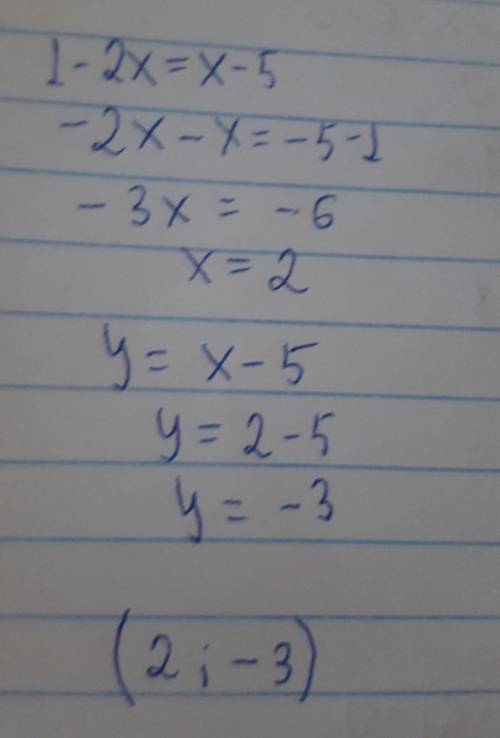 1-2x=x-5
-2x-x=-5-1
-3x=-6
x=2
y=x-5
y=2-5
y=-3
(2;-3)